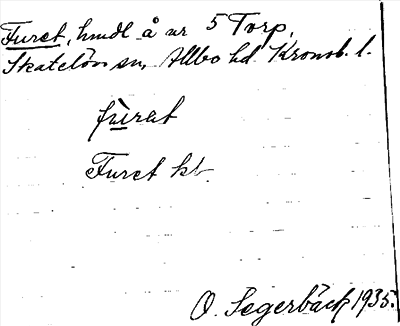 Furet, hmdl å nr 5 Torp,
Skatelövs sn, Allbo hd Kronob. l.
fùrət
Furet kt.
O. Segerbäck 1935.